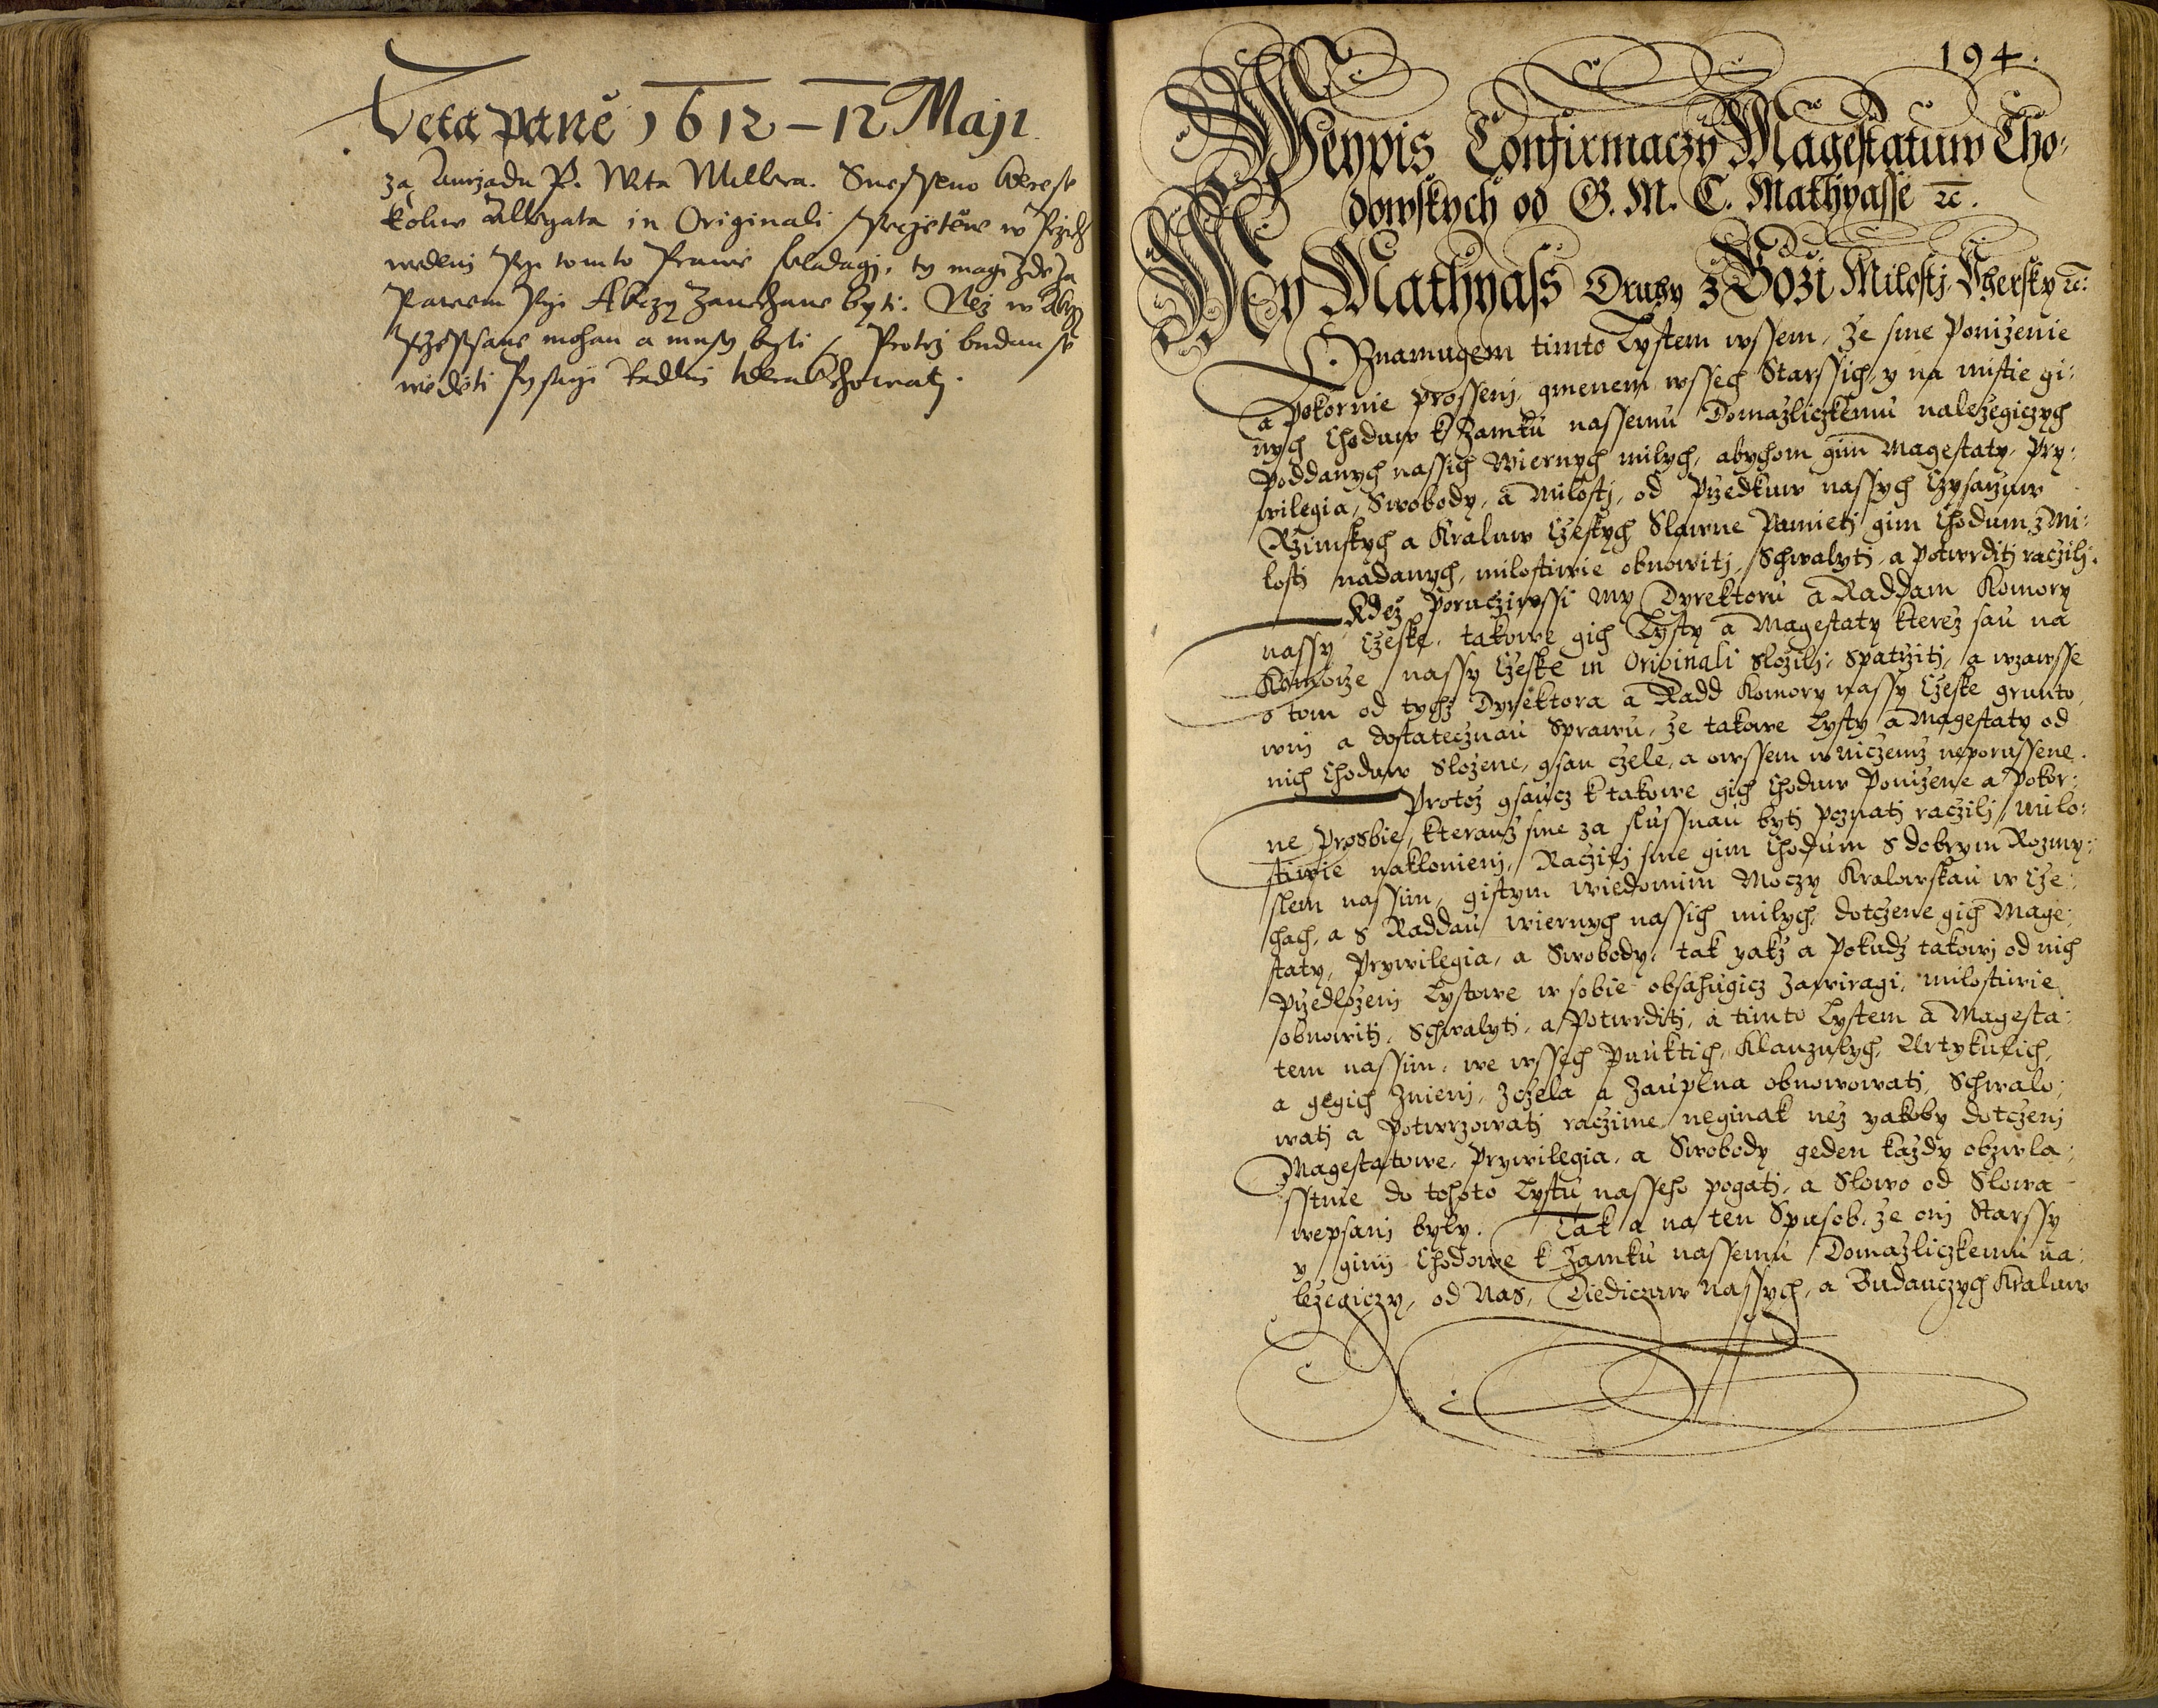 Leta pane 1612 – 12 Maji
za Aurzadu P. Wita Millera. Snesseno kterez
koliw Allegata in Originali
wedeni Przi tomto Prawie skladagj, ty magi zde za
Pawem Przi Akczy zanechane byti. Nez w
mohau a musy byti Protoz budau se
wiedeti Pysarzi Raddni chowatj.
194.
Weypis Confirmaczy Magestatuw Cho-
dowskych od G. M. C. Mathyasse ꝛc.
My Mathyass Druhy z Bozi Milosti Vhersky ꝛc:
Oznamugem timto Lystem wssem, Ze sme Ponizenie
a Pokornie prosseni, gmenem wssech Starssich, y na mistie gi:
nych Choduw k Zamku nassemu Domazliczkemu nalezegiczych
Poddanych nassich Wiernych milych, abychom gim Magestaty, Pry:
wilegia, Swobody, a Milosti, od Przedkuw nassych Czysarzuw
Rzimskych a Kraluw Czeskych Slawne Pamieti gim Chodum z Mi:
losti nadanych, milostiwie obnowiti, Schwalyti, a Potwrditi raczili.
Kdez Porucziwssi my Dyrektoru a Raddam Komory
nassy Czeske, takowe gich Lysty a Magestaty kterez sau na
Komorze nassy Czeske in Originali slozili, Spatrziti, a wzawsse
o tom od tychz Dyrektora a Radd Komory nassy Czeske grunto
wni a dostatecznau Sprawu, ze takowe Lysty a Magestaty od
nich Choduw Slozene, gsau czele, a owssem w niczemz neporussene.
Protoz gsaucz k takowe gich Choduw Ponizene a Pokor:
ne Prosbie, kterauz sme za slussnau byti poznati raczili, milo:
stiwie naklonieni, Raczili sme gim Chodum s dobrym Rozmy:
slem nassim, gistym wiedomim Moczy Kralowskau w Cze:
chach, a s Raddau wiernych nassich milych, dotczene gich Mage:
staty, Prywilegia, a Swobody, tak yakz a Pokudz takowi od nich
Przedlozeni Lystowe w sobie obsahugicz zawiragi, milostiwie
obnowiti, Schwalyti, a Potwrditi, a timto Lystem a Magesta:
tem nassim, we wssech Punktich, Klauzulych, Artykulich,
a gegich Znieni, Zczela a Zauplna obnowowati, Schwalo:
wati a Potwrzowati raczime, neginak nez yakoby dotczeni
Magestatowe, Prywilegia, a Swobody geden kazdy obzwla:
sstnie do tohoto Lystu nasseho pogati, a Slowo od Slowa
wepsani byly. Tak a na ten Spusob, ze oni Starssy
y gini Chodowe k Zamku nassemu Domazliczkemu na:
lezegiczy, od Nas, Diediczuw Nassych, a Budauczych Kraluw